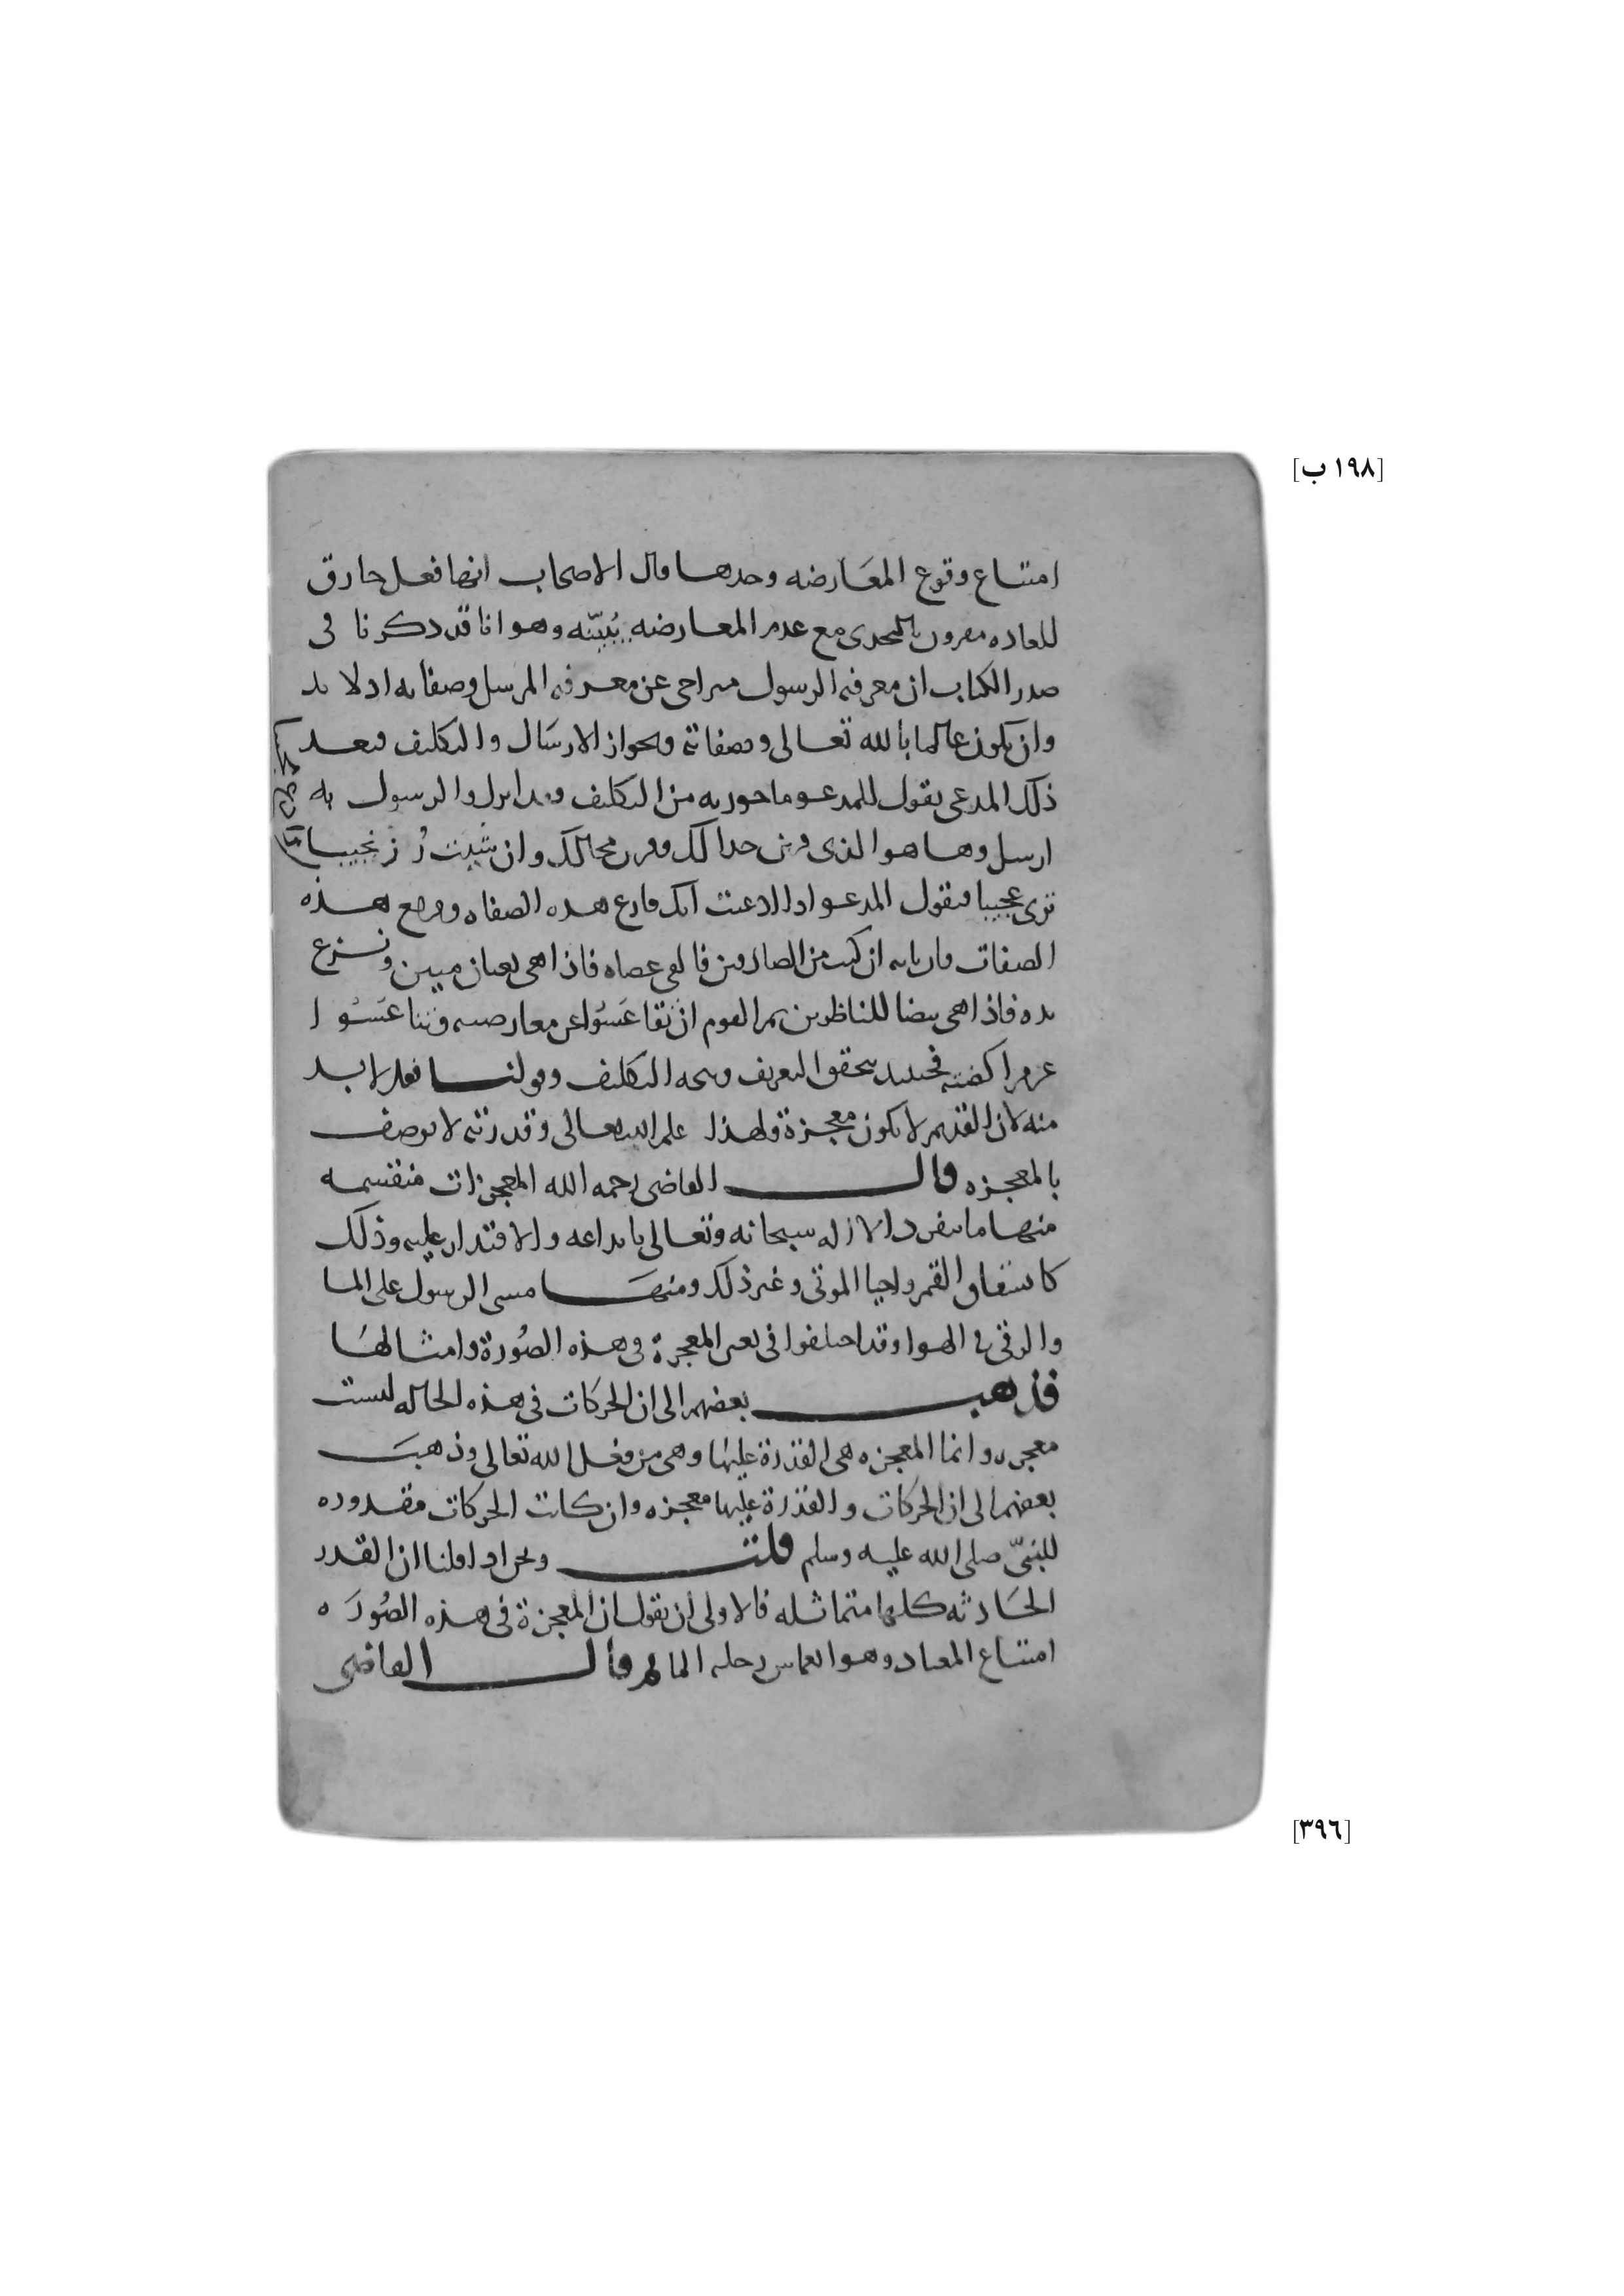 [١٩٨ ب]
امتناع وقوع المعَارضه وحدها قال الاصحاب انها فعل خارق
للعاده مقرون بالتحدى مع عدم المعارضه يُبيّنه وهو انا قد ذكرنا فى
صدر الكتاب ان معرفه الرسول متراخى عن معرفه المرسل وصفاته اذ لا بد
وان يكون عالما بالله تعالى وصفاته وبجواز الارسَال والتكليف فبعد
ذلك المدعى يقول للمدعو ما جوزته من التكليف والرسول به
ارسل وها هو الذى وان شيت زُ
ترى عجيبا فيقول المدعو هذه الصفات هذه
الصفات فات بايه ان كنت من الصادقين فالقى عصاه فاذا هى ثعبان مبين ونزع
يده فاذا هى بيضا للناظرين ثم القوم ان تقاعَسُوا عن معارضته وتقاعَسُوا
عن فحينيذ يتحقق التعريف ويتجه التكليف وقولنا فعل لا بد
منه لان القديم لا يكون معجزة ولهذا علم الله تعالى وقدرته لا يوصف
بالمعجزه قال القاضى رحمه الله المعجزات منقسمه
منها ما ينفرد الاله سبحانه وتعالى بابداعه والاقتدار عليه وذلك
كانشقاق القمر واحيا الموتى وغير ذلك ومنهَا مشى الرسول على الما
والرقى فى الهوا وقد اختلفوا فى المعجزة فى هذه الصُورة وامثالهَا
فذهب بعضهم الى ان الحركات فى هذه الحاله ليست
معجزه وانما المعجزه هى القدرة عليهَا وهى من فعل الله تعالى وذهبَ
بعضهم الى ان الحركات والقدرة عليها معجزه وان كانت الحركات مقدوره
للنبىّ صلى الله عليه وسلم قلت ونحن اذا قلنا ان القدر
الحَادثه كلها متماثله فالاولى ان يقول ان المعجزة فى هذه الصُورَه
امتناع المعتاد وهو قال القاضى
[٣٩٦]